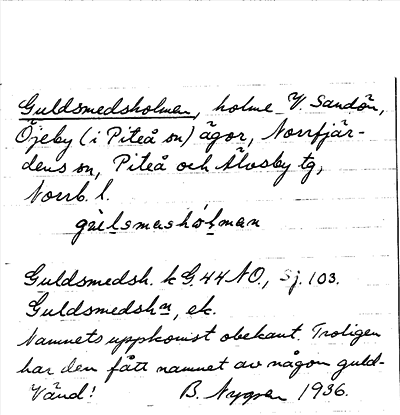 Guldsmedsholmen, holme V. Sandön,
Öjeby (i Piteå sn) ägor, Norrfjär-
dens sn, Piteå och Älvsby tg,
Norrb. l.
gu̇lsmashȯlman
Guldsmedsh. k G.44 NO., Sj. 103.
Guldsmedshn, ek.
Namnets uppkomst obekant. Troligen
har den fått namnet av någon guld-
Vänd! B. Nygren 1936.